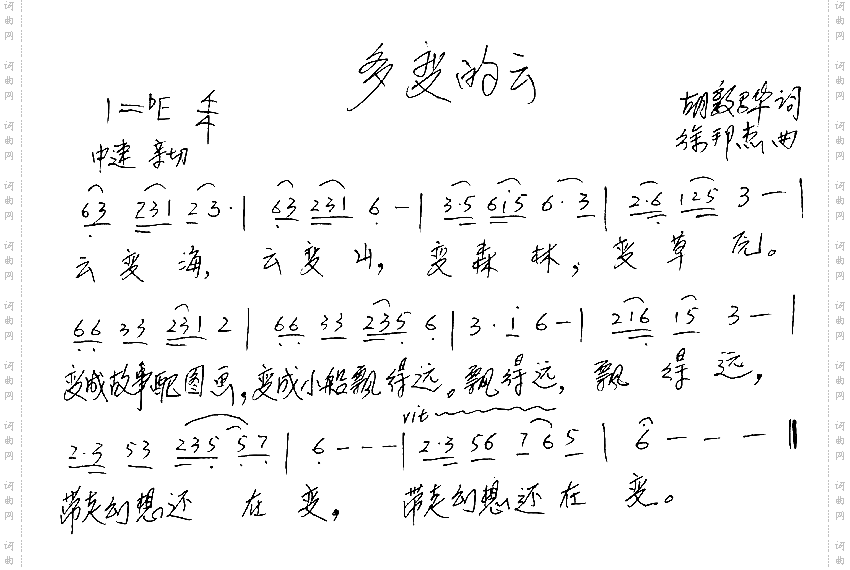 多变的云
1=♭E 4/4
中速 亲切
胡敦骅词
徐邦杰曲
63 231 23· | 63 231 6 - | 3·5 6i5 6·3 | 2·6 125 3 - |
云变海, 云变山, 变森林, 变草原。
66 33 231 2 | 66 33 235 6 | 3·i 6 - | 216 15 3 - |
变成故事配图画,变成小船飘得远。飘得远, 飘得远,
rit
2·3 53 235 57 | 6 - - - | 2·3 56 76 5 | 6 - - - ‖
带走幻想还在变, 带走幻想还在变。
词曲网